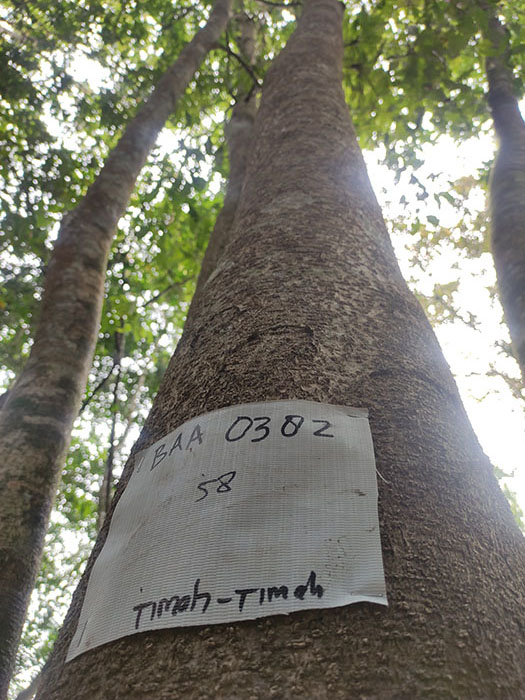 BAA 0382
58
TIMAH-TIMAH